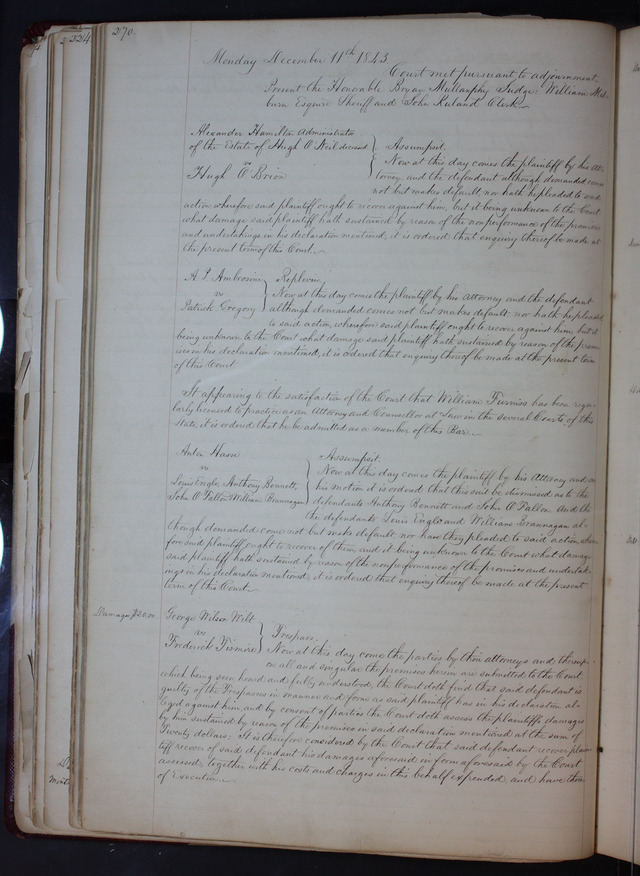 224
270.
Monday December 11th 1843.
Court met pursuant to adjournment.
Present the Honorable Bryan Mullanphy Judge. William Mil-
burn Esquire Sheriff and John Ruland Clerk.
Alexander Hamilton Administrator
of the Estate of Hugh O Neil deceased
vs
Hugh O Brien
Assumpsit.
Now at this day comes the plaintiff by his At-
torney and the defendant although demanded comes
not but makes default, nor hath he pleaded to said
action wherefore said plaintiff ought to recover against him, but it being unknown to the Court
what damage said plaintiff hath sustained by reason of the nonperformance of the promises
and undertakings in his declaration mentioned, it is ordered that enquiry thereof be made at
the present term of this Court.
A P Ambrosini
vs
Patrick Gregory
Replevin.
Now at this day comes the plaintiff by his Attorney and the defendant
although demanded comes not but makes default, nor hath he pleaded
to said action, wherefore said plaintiff ought to recover against him, but it
being unknown to the Court what damage said plaintiff hath sustained by reason of the prem-
ises in his declaration mentioned, it is ordered that enquiry thereof be made at the present term
of this Court
It appearing to the satisfaction of the Court that William Furniss has been regu-
larly licensed to practice as an Attorney and Counsellor at Law in the several Courts of this
State, it is ordered that he be admitted as a member of this Bar.
vs
Louis Engle, Anthony Bennett,
John O Fallon William Brannagan
Assumpsit.
Now at this day comes the plaintiff by his Attorney and on
his motion it is ordered that this suit be dismissed as to the
defendants Anthony Bennett and John O Fallon. And the
the defendants Louis Engle and William Brannagan al-
though demanded come not but make default, nor have they pleaded to said action where-
fore said plaintiff ought to recover of them, and it being unknown to the Court what damage
said plaintiff hath sustained by reason of the nonperformance of the promises and undertak-
ings in his declaration mentioned; it is ordered that enquiry thereof be made at the present
term of this Court.
Damages $20.00
George Wilson Welt
vs
Frederick
Trespass.
Now at this day come the parties by their attorneys and thereup-
on all and singular the premises herein are submitted to the Court
which being seen heard and fully understood, the Court doth find that said defendant is
guilty of the Trespasses in manner and form as said plaintiff has in his declaration al-
leged against him, and by consent of parties the Court doth assess the plaintiffs damages
by him sustained by reason of the premises in said declaration mentioned at the sum of
Twenty dollars: It is therefore considered by the Court that said defendant recover plain-
tiff recover of said defendant his damages aforesaid in form aforesaid by the Court
assessed, together with his costs and charges in this behalf expended, and have thereof
of Execution.